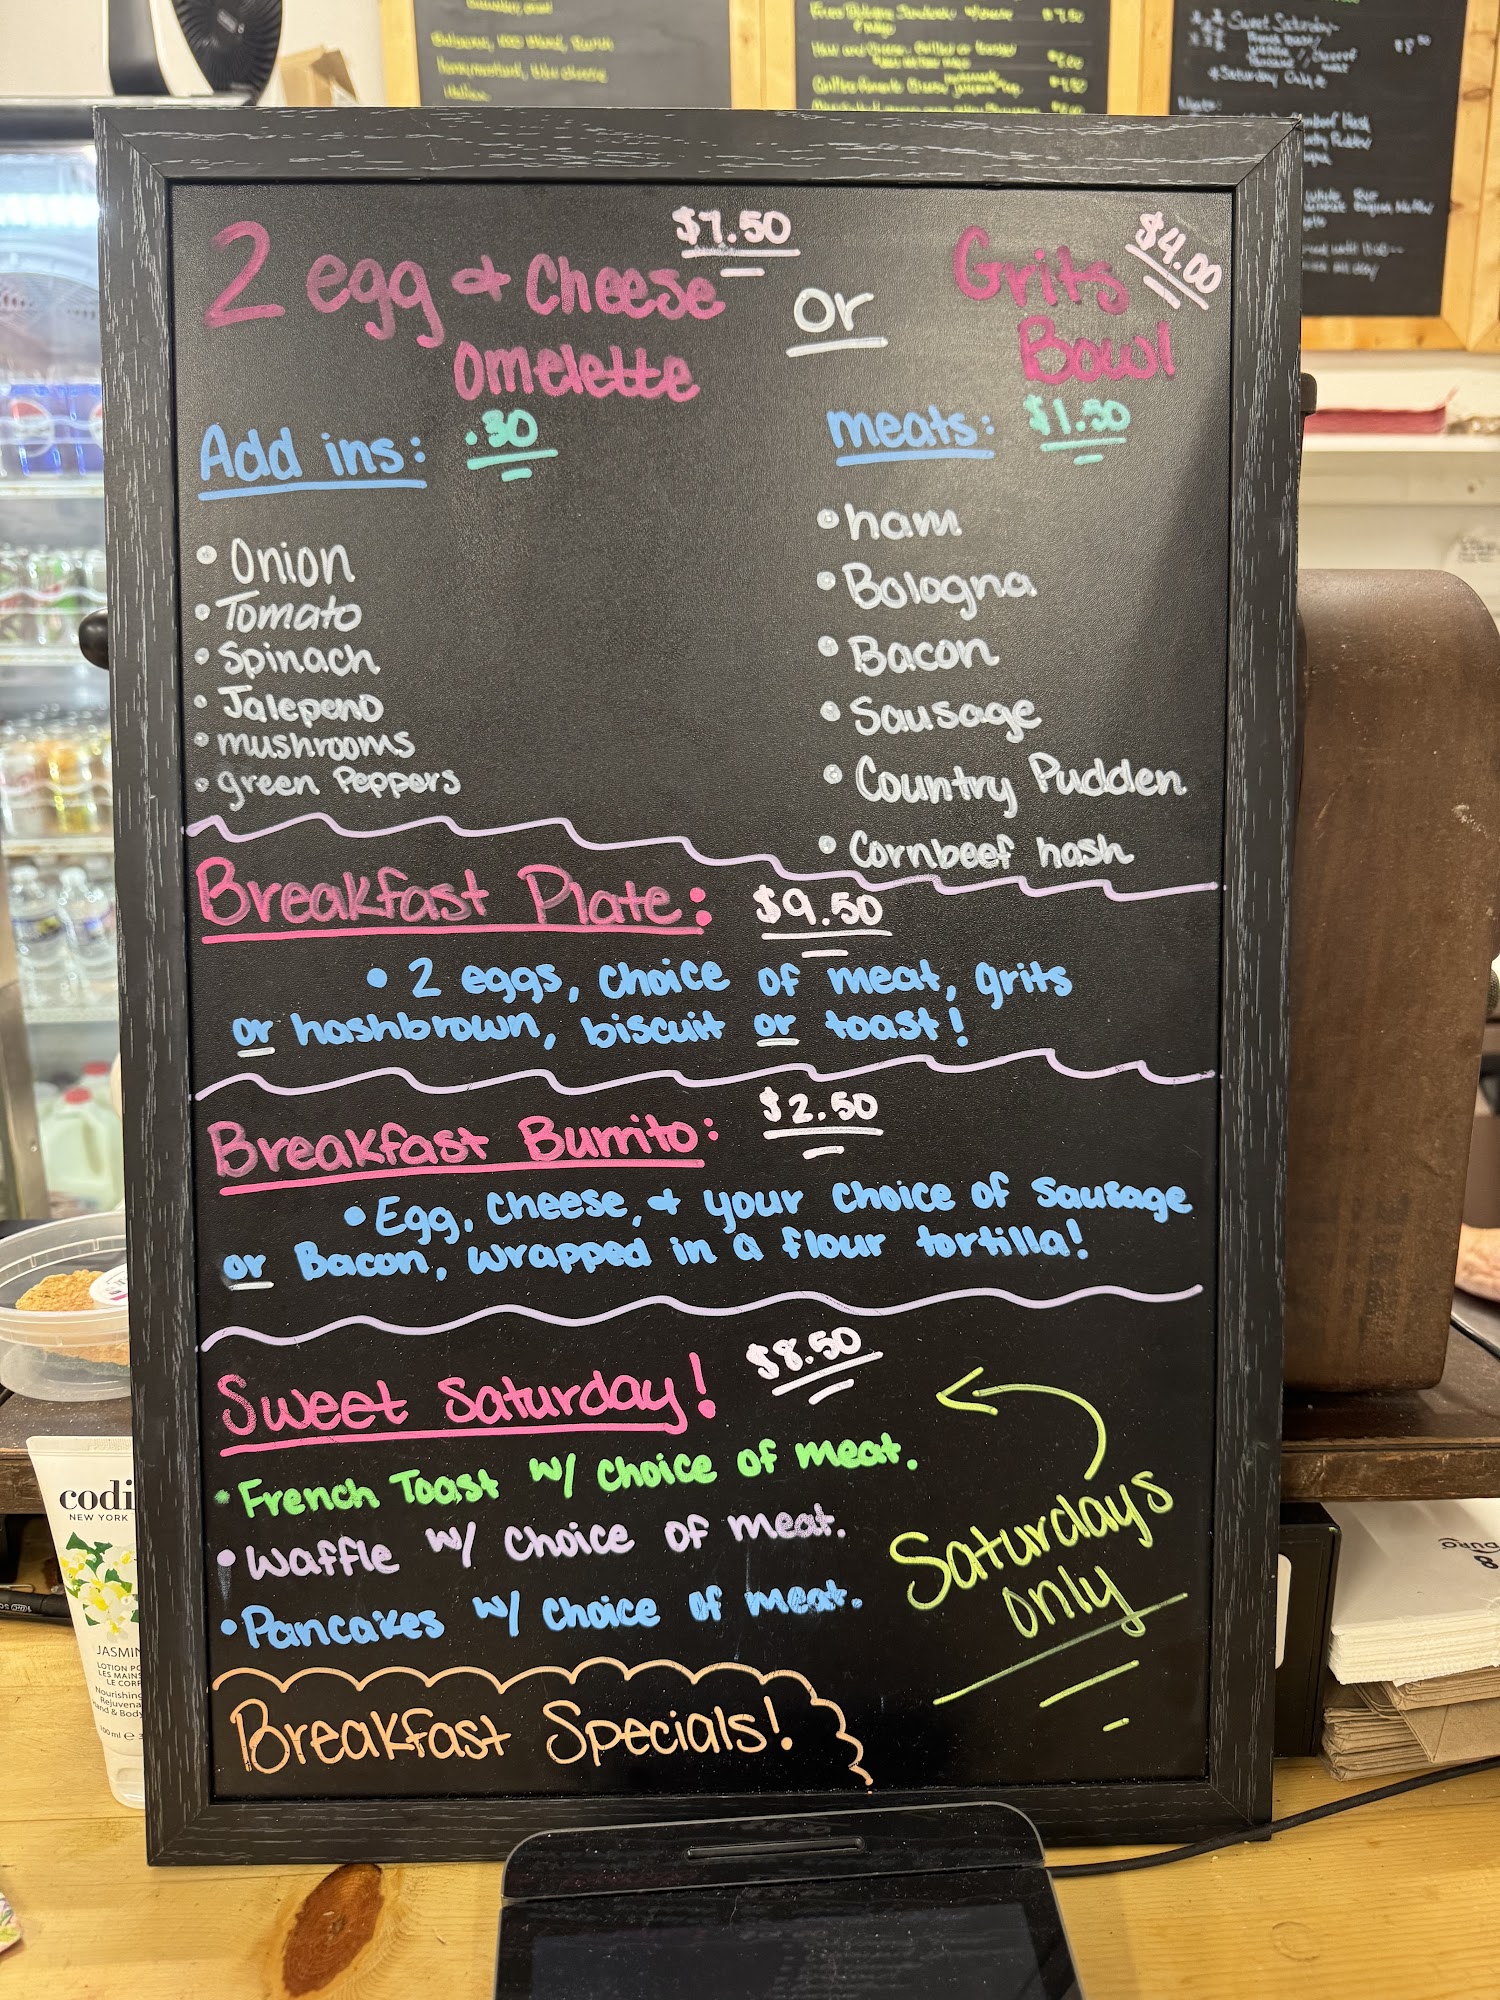 Honeymustard, Blue cheese
Italian
*Saturday Only*
2 egg & Cheese $7.50
omelette
or
Grits $4.00
Bowl
Add ins: .30
• Onion
• Tomato
• Spinach
• Jalepeno
• mushrooms
• green Peppers
meats: $1.50
• ham
• Bologna
• Bacon
• Sausage
• Country Pudden
• Cornbeef hash
Breakfast Plate: $9.50
• 2 eggs, choice of meat, grits
or hashbrown, biscuit or toast!
Breakfast Burrito: $2.50
• Egg, cheese, & your choice of sausage
or Bacon, wrapped in a flour tortilla!
Sweet Saturday! $8.50
• French Toast w/ choice of meat.
• Waffle w/ choice of meat.
• Pancakes w/ choice of meat.
Saturdays
only
Breakfast Specials!
codi
NEW YORK
JASMIN
LOTION PO
LES MAINS
LE CORP
Nourishing
Rejuvena
and & Body
100 ml e 3